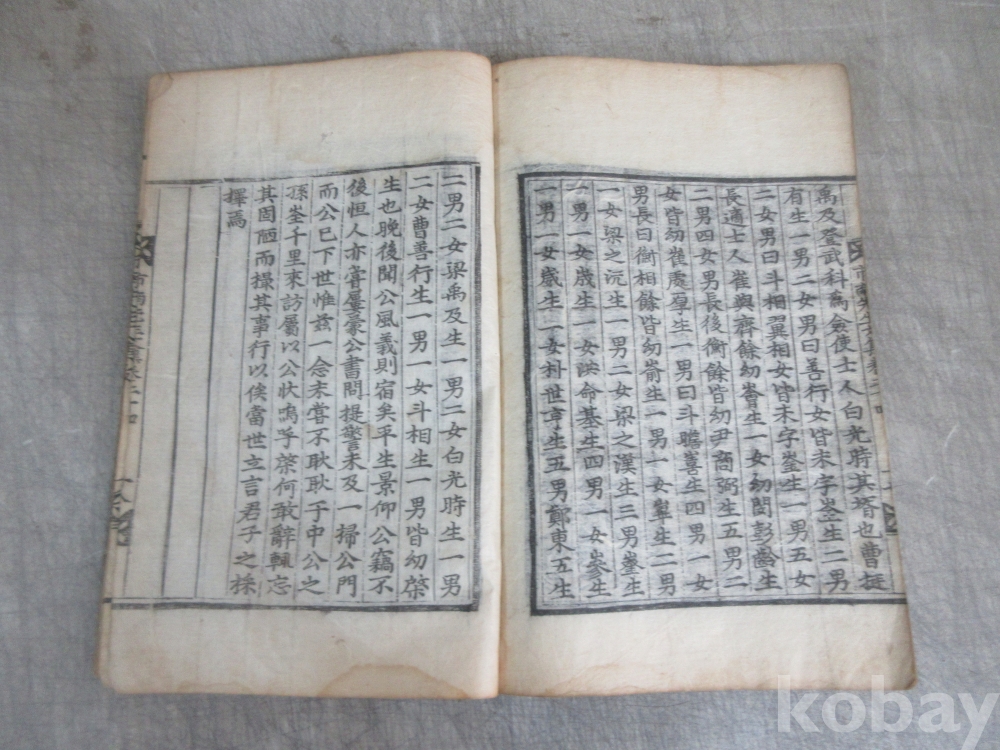 禹及登武科爲僉使士人白光時其壻也曹挺
有生一男二女男曰善行女皆未字崟生二男
二女男曰斗相翼相女皆未字崟生一男五女
長適士人崔與齊餘幼嶜生一女幼閔彭齡生
二男四女男長後衡餘皆幼尹商弼生五男二
女皆幼崔處厚生一男曰斗瞻嵩生四男一女
男長曰衡相餘皆幼崙生一男一女
生二男
一女梁之沅生一男二女梁之漢生三男
生
一男一女歲生一女洪命基生四男一女
生
一男一女歲生一女朴世亨生五男鄭東五生
二男二女梁禹及生一男二女白光時生一男
二女曹善行生一男一女斗相生一男皆幼棨
生也晚後聞公風義則宿矣平生景仰公竊不
後恒人亦嘗屢蒙公書問提警未及一掃公門
而公已下世惟玆一念未嘗不耿耿于中公之
孫崟千里來訪屬以公狀嗚乎棨何敢辭輒忘
其固陋而撮其事行以俟當世立言君子之採
擇焉